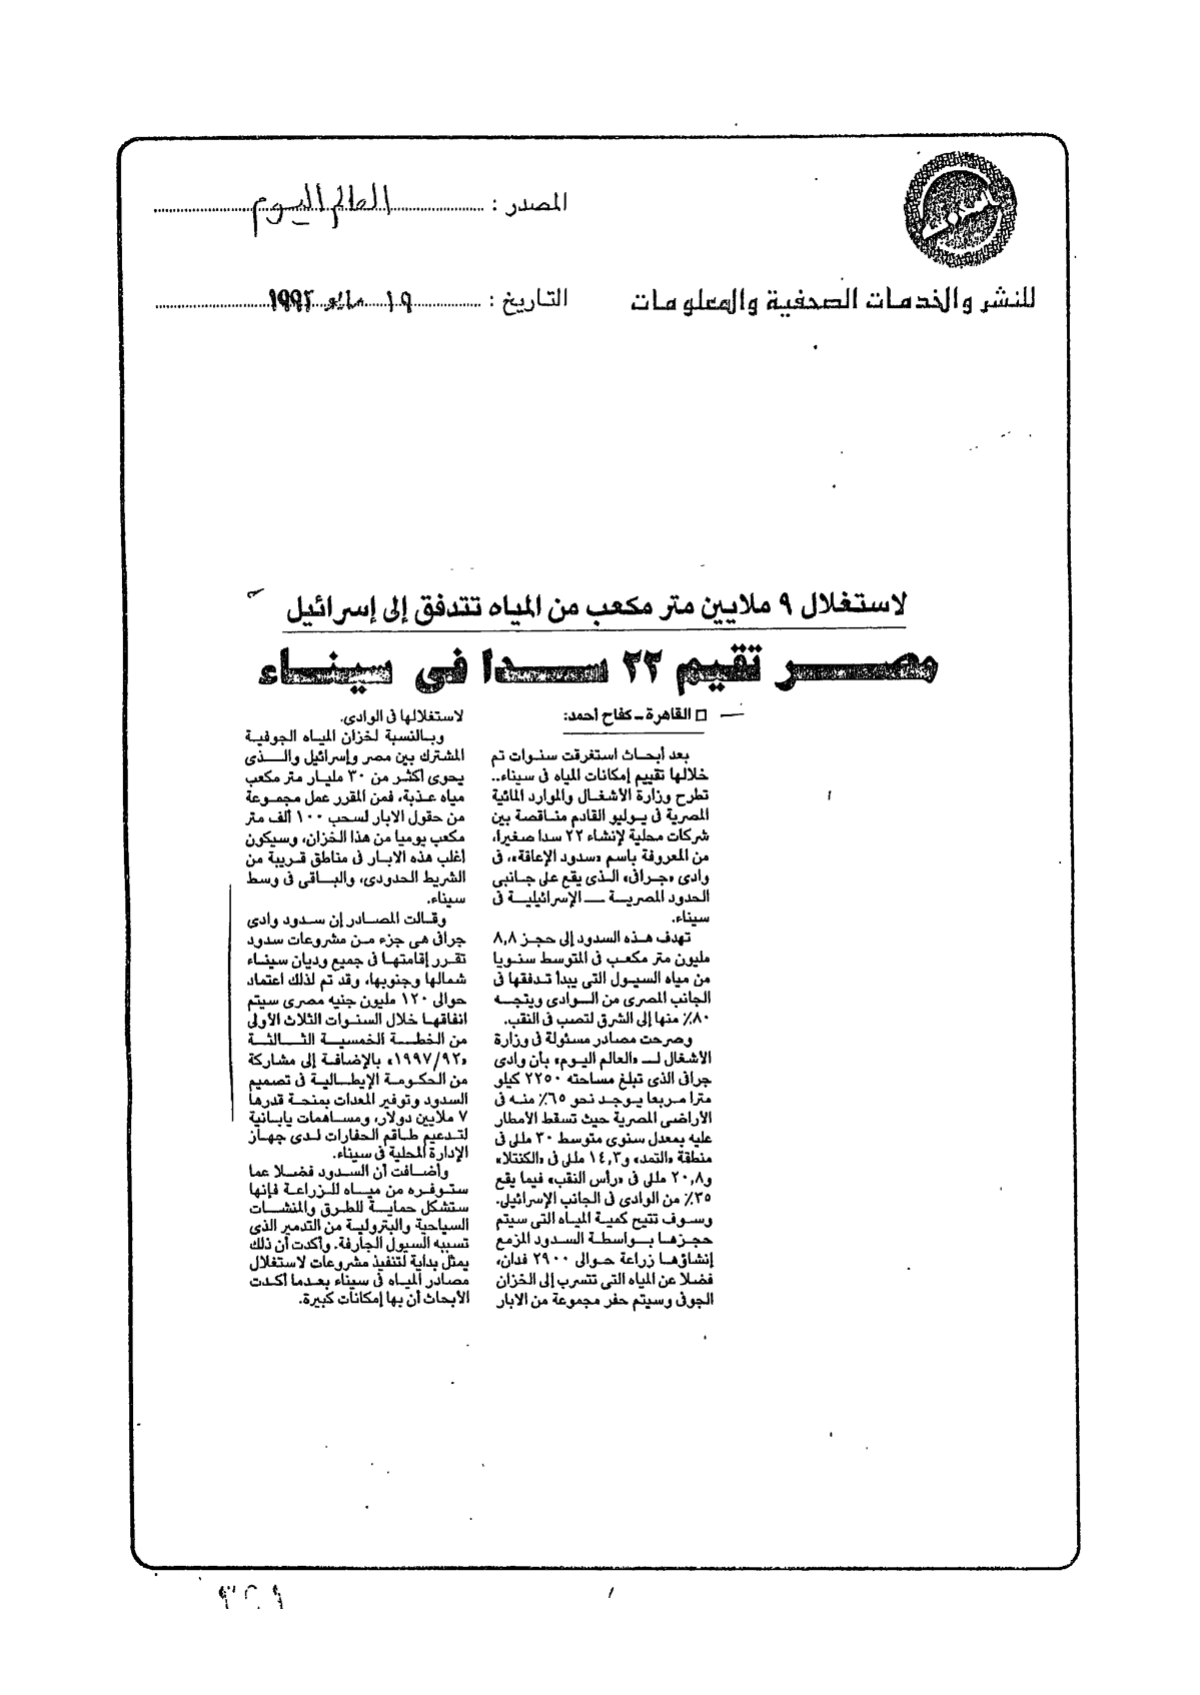 المصدر : العالم اليوم
للنشر والخدمات الصحفية والمعلومات
التاريخ : ١٩ مايو ١٩٩٢
لاستغلال ٩ ملايين متر مكعب من المياه تتدفق إلى إسرائيل
مصر تقيم ٢٢ سدا فى سيناء
القاهرة ـ كفاح أحمد:
بعد أبحاث استغرقت سنوات تم
خلالها تقييم إمكانات المياه فى سيناء..
تطرح وزارة الاشغال والموارد المائية
المصرية فى يوليو القادم مناقصة بين
شركات محلية لإنشاء ٢٢ سدا صغيرا،
من المعروفة باسم «سدود الإعاقة»، فى
وادى «جرافى» الذى يقع على جانبى
الحدود المصرية ــ الإسرائيلية فى
سيناء.
تهدف هذه السدود إلى حجز ٨,٨
مليون متر مكعب فى المتوسط سنويا
من مياه السيول التى يبدأ تدفقها فى
الجانب المصرى من الوادى ويتجه
٨٠٪ منها إلى الشرق لتصب فى النقب.
وصرحت مصادر مسئولة فى وزارة
الأشغال لـ «العالم اليوم» بأن وادى
جرافى الذى تبلغ مساحته ٢٢٥٠ كيلو
مترا مربعا يوجد نحو ٦٥٪ منه فى
الأراضى المصرية حيث تسقط الأمطار
عليه بمعدل سنوى متوسط ٣٠ مللى فى
منطقة «التمد» و١٤,٣ مللى فى «الكنتلا»
و٢٠,٨ مللى فى «رأس النقب» فيما يقع
٣٥٪ من الوادى فى الجانب الإسرائيلى.
وسوف تتيح كمية المياه التى سيتم
حجزها بواسطة السدود المزمع
إنشاؤها زراعة حوالى ٢٩٠٠ فدان،
فضلا عن المياه التى تتسرب إلى الخزان
الجوفى وسيتم حفر مجموعة من الآبار
لاستغلالها فى الوادى.
وبالنسبة لخزان المياه الجوفية
المشترك بين مصر وإسرائيل والذى
يحوى أكثر من ٣٠ مليار متر مكعب
مياه عذبة، فمن المقرر عمل مجموعة
من حقول الآبار لسحب ١٠٠ ألف متر
مكعب يوميا من هذا الخزان، وسيكون
أغلب هذه الآبار فى مناطق قريبة من
الشريط الحدودى، والباقى فى وسط
سيناء.
وقالت المصادر إن سدود وادى
جرافى هى جزء من مشروعات سدود
تقرر إقامتها فى جميع وديان سيناء
شمالها وجنوبها، وقد تم لذلك اعتماد
حوالى ١٢٠ مليون جنيه مصرى سيتم
انفاقها خلال السنوات الثلاث الأولى
من الخطة الخمسية الثالثة
«١٩٩٧/٩٢» بالإضافة إلى مشاركة
من الحكومة الإيطالية فى تصميم
السدود وتوفير المعدات بمنحة قدرها
٧ ملايين دولار، ومساهمات يابانية
لتدعيم طاقم الحفارات لدى جهاز
الإدارة المحلية فى سيناء.
وأضافت أن السدود فضلا عما
ستوفره من مياه للزراعة فإنها
ستشكل حماية للطرق والمنشآت
السياحية والبترولية من التدمير الذى
تسببه السيول الجارفة. وأكدت أن ذلك
يمثل بداية لتنفيذ مشروعات لاستغلال
مصادر المياه فى سيناء بعدما أكدت
الأبحاث أن بها إمكانات كبيرة.